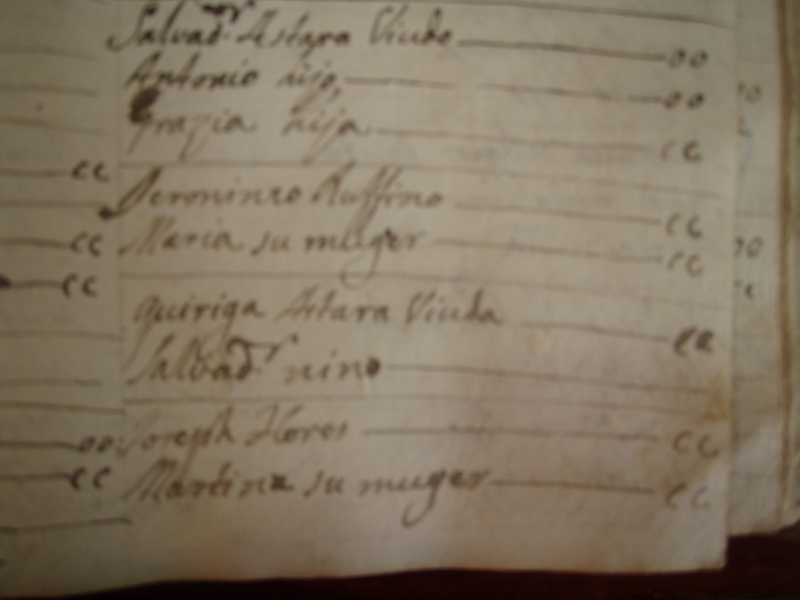 cc
cc
cc
oo
cc
Salvad.r Astara Viudo oo
Antonio hijo, oo
Grazia hija cc
Jeronimo Ruffino cc
Maria su muger cc
Quiriga Astara Viuda cc
Salvad.r nino
Joseph Flores cc
Martina su muger cc